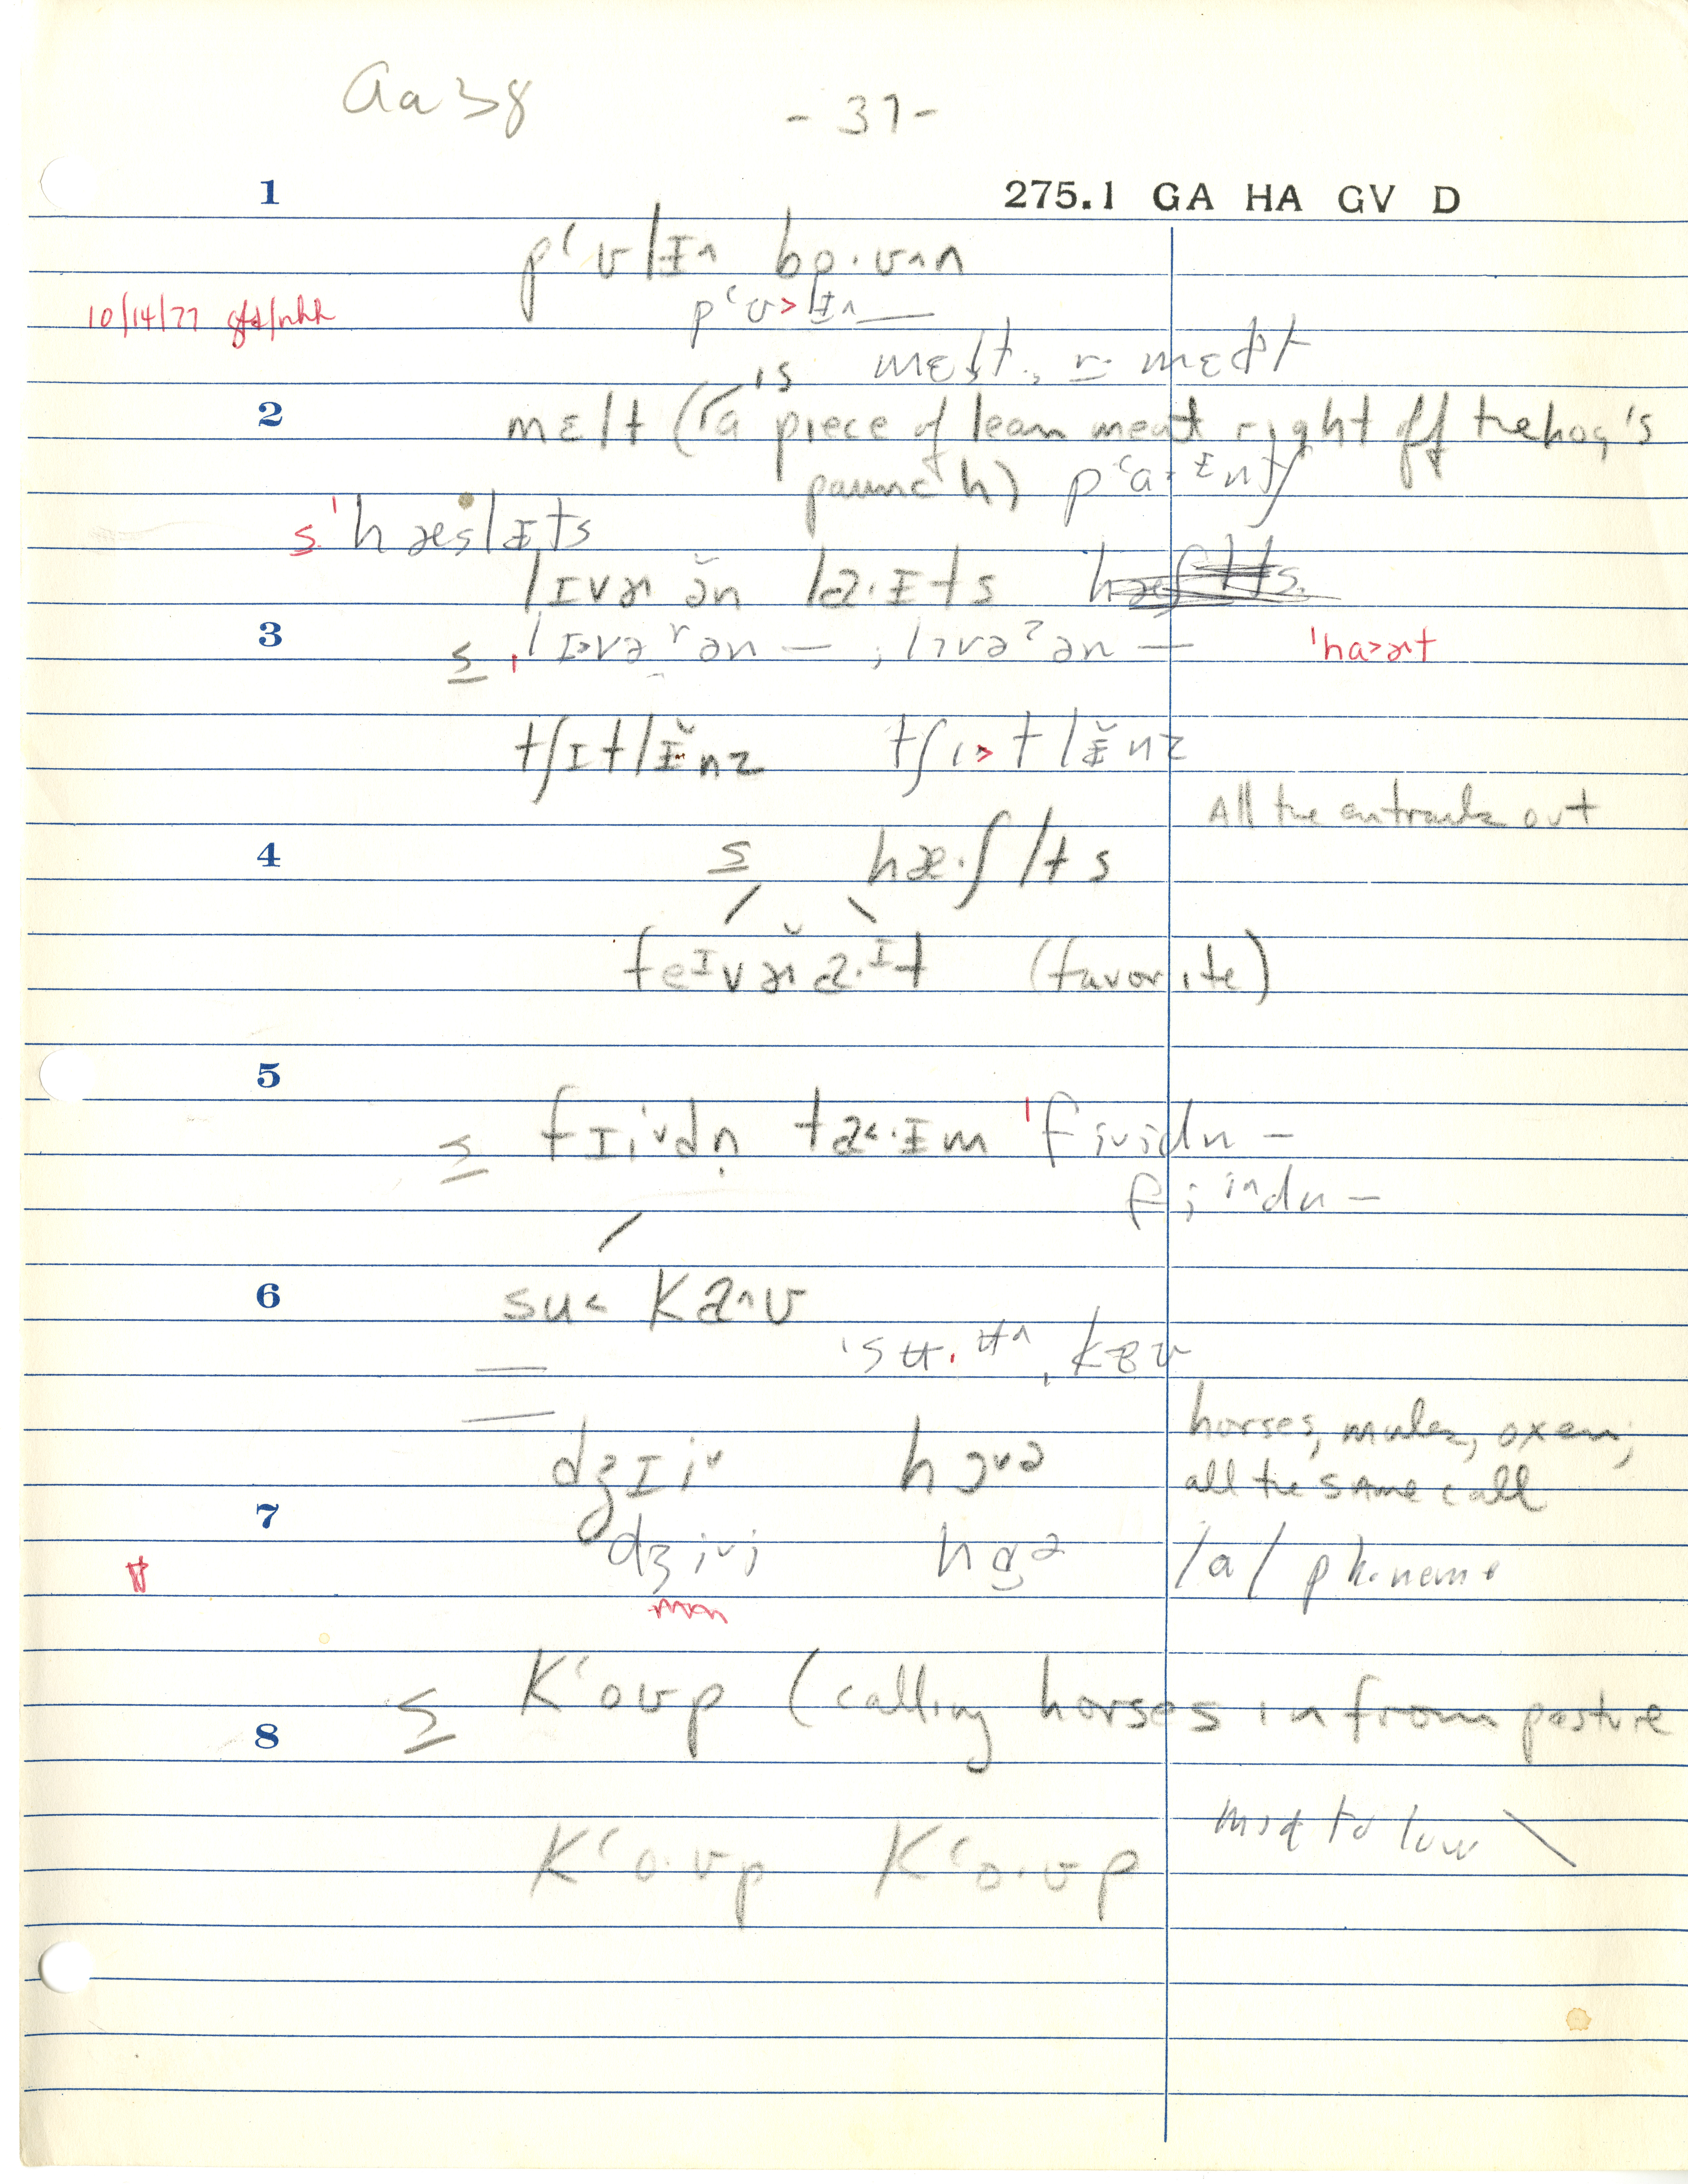 Aa 38 - 37 -
1 275.1 GA HA GV D
pʻʊlɪ^n bo·ʊ^n
10/14/77 pʻʊ>lɪ^n —
mɛlt, r: mɛɫt
2 mɛlt (is a piece of lean meat right off the hog's
paunch) pʻa·ɪntʃ
s 'hæslɪts
lɪvɚ ə̆n la·ɪts
3 s ˌlɪ>vəʳən — ; lɪvəˀən — 'ha>ɚt
tʃɪtlɪ̆nz tʃɪ>tlɪ̆nz
All the entrails out
4 s hæ·ʃlts
feɪvɚ̆a·ɪt (favorite)
5
s fɪivdn̩ ta<·ɪm 'fividn —
fi i^ndn —
6 su< ka^ʊ
'sʉ·ʉ^ˌkɐʊ
dʒɪiv hɔvə horses, mules, oxen;
all the same call
7 dʒivi hɑə /a/ phoneme
8 s Kʻoʊp (calling horses in from pasture
Kʻo·ʊp Kʻo·ʊp mid to low \